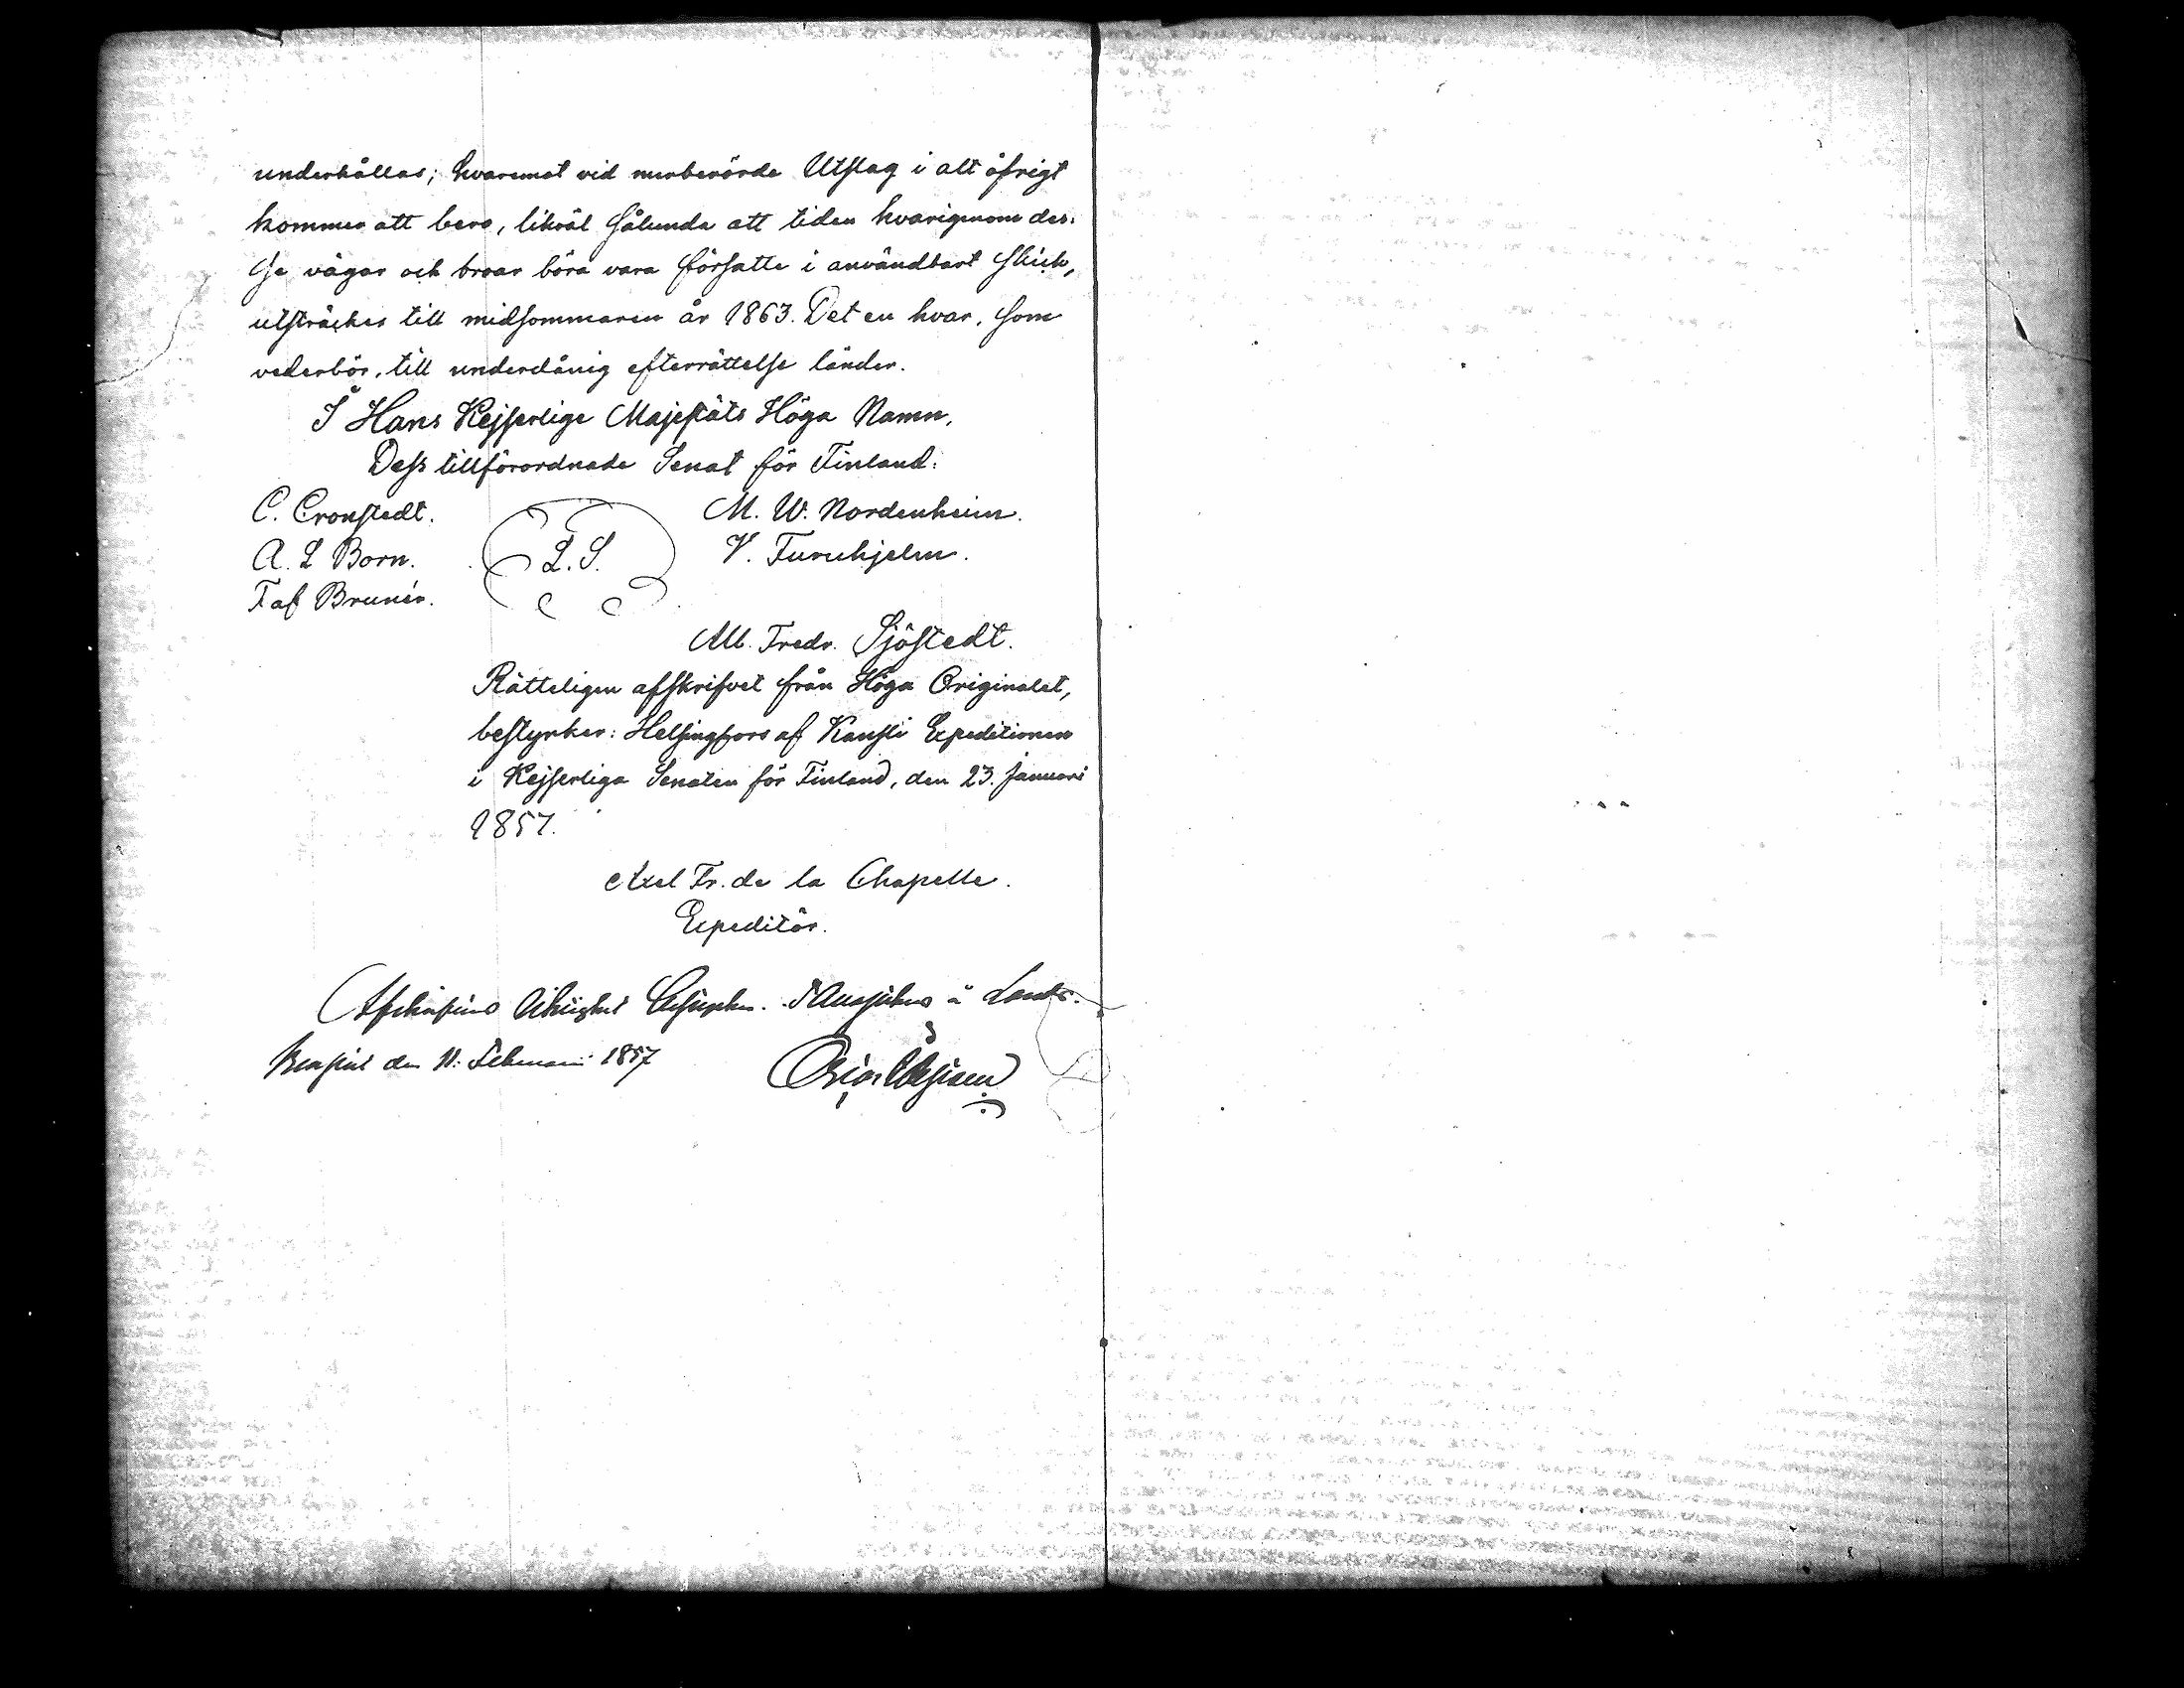 underhållas; hvaremot vid merberörde Utslag i alt öfrigt
kommer att bero, likväl sålunda att tiden hvarigenom des-
se vägar och broar böra vara försatte i användbart skick,
utsträckes till midsommaren år 1863. Det en hvar, som
vederbör, till underdånig efterrättelse länder.
I Hans Kejserlige Majestäts Höga Namn,
Dess tillförordnade Senat för Finland:
C. Cronstedt. M. W. Nordenheim.
A. L Born. L.S. V. Furuhjelm.
F af Brunér.
Alb. Fredr. Sjöstedt.
Rätteligen afskrifvet från Höga Originalet,
bestyrker: Helsingfors af Kansli Expeditionen
i Kejserliga Senaten för Finland, den 23. Januari
1857.
Axel Fr. de la Chapelle.
Expeditör.
Afskriftens riktighet å Lands-
den 11. Februari 1857